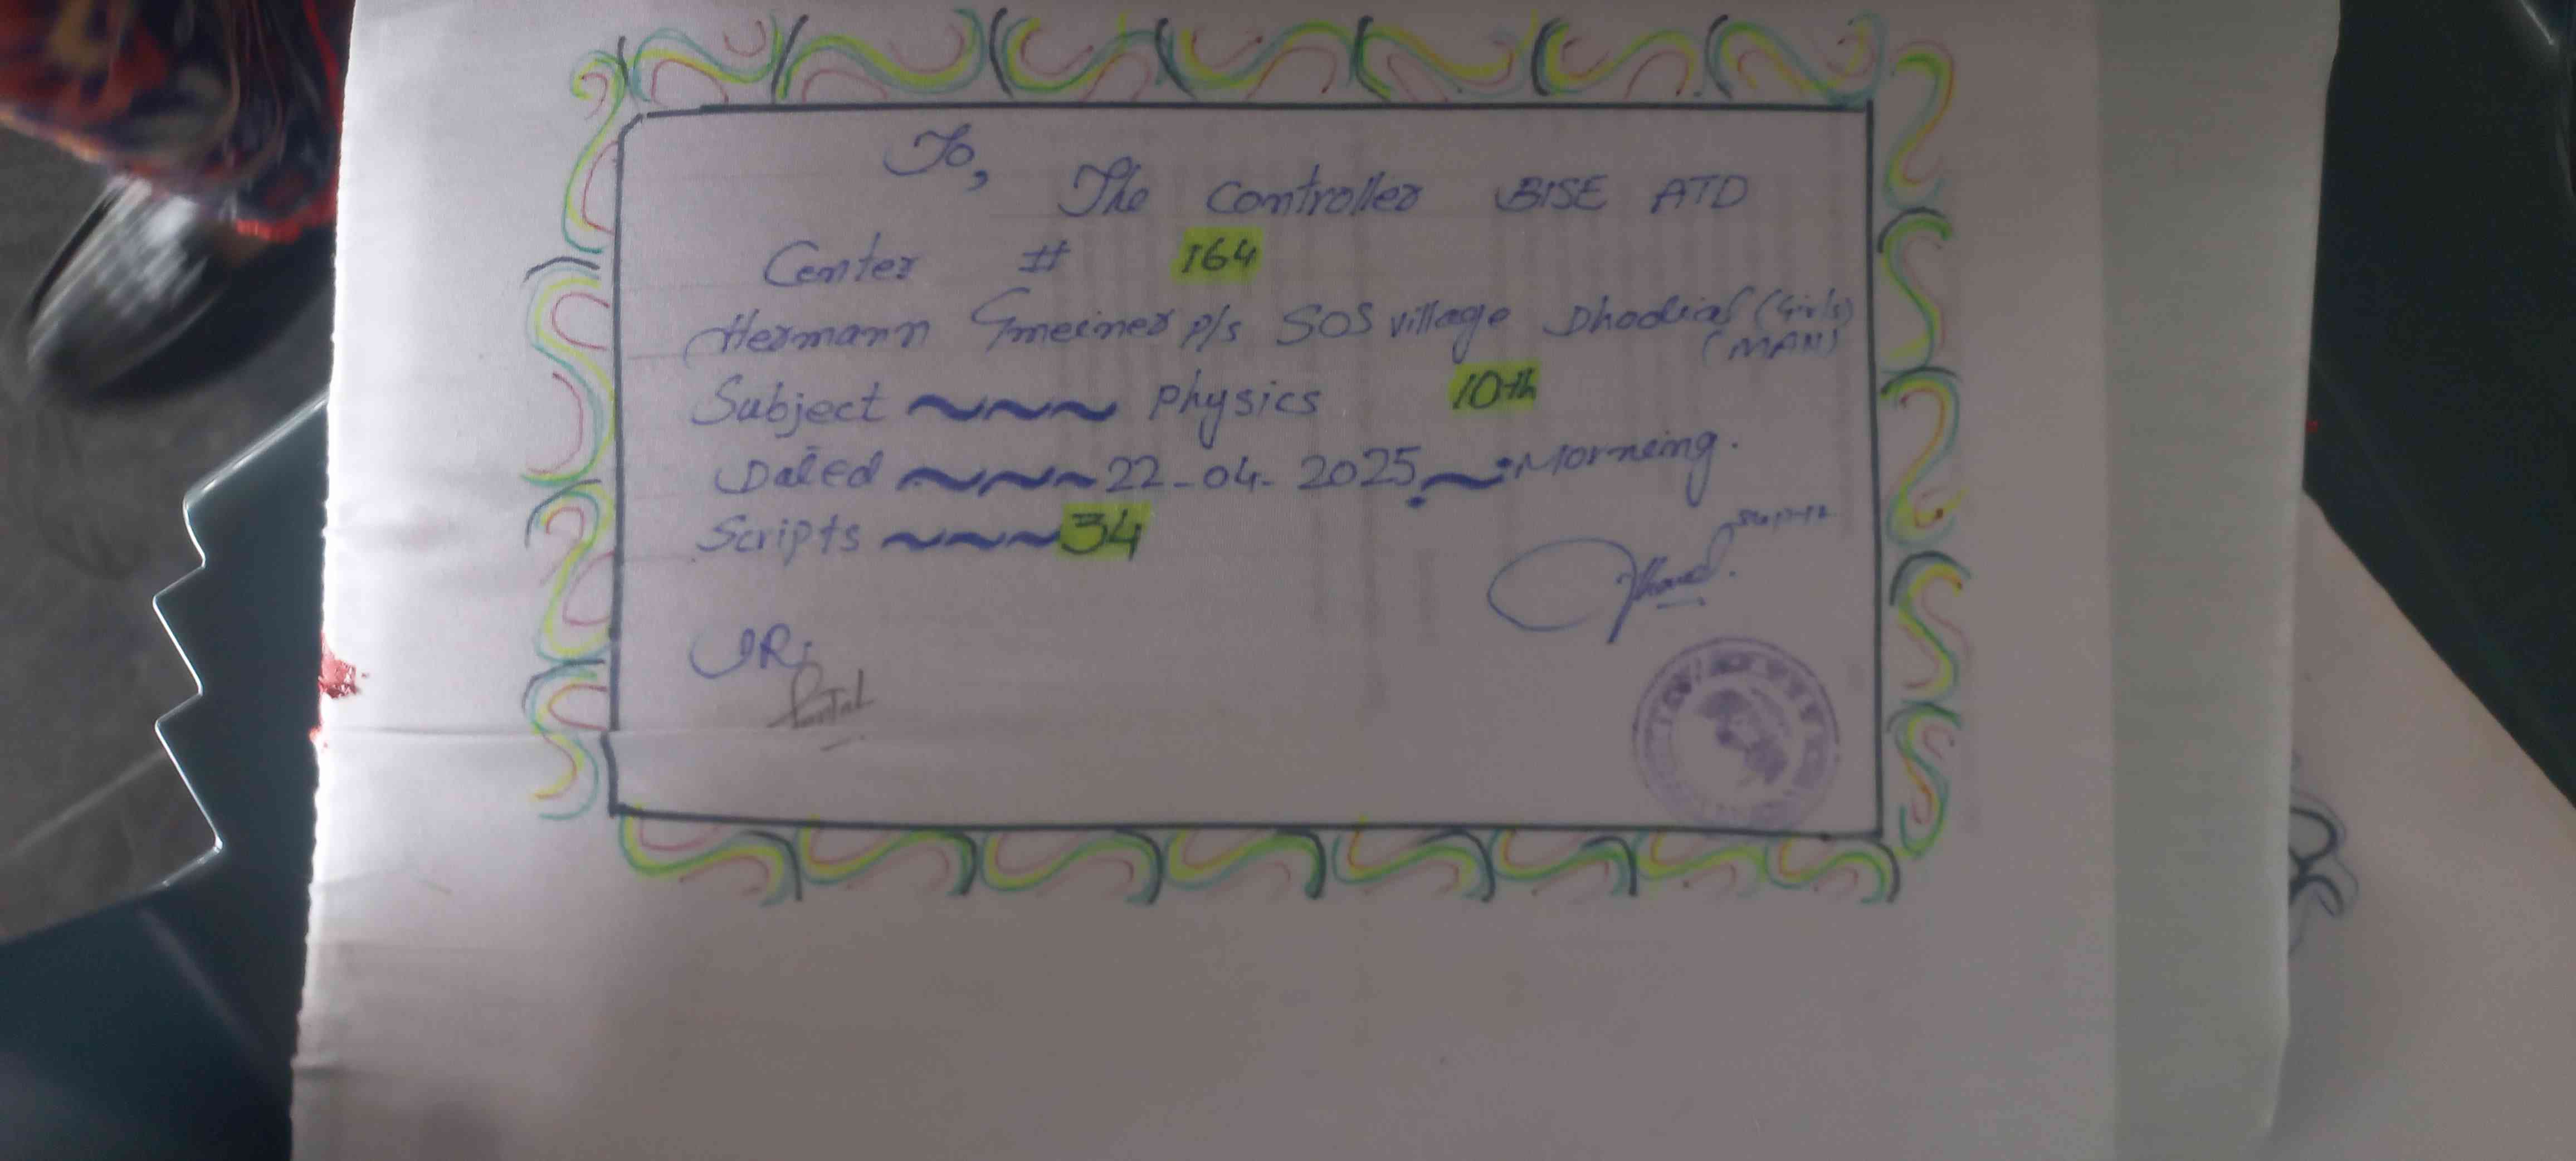 To,
The Controller BISE ATD
Center # 164
Hermann Gmeiner P/s SOS village Dhodial (Girls)
(MAN)
Subject ~~~ Physics 10th
Dated ~~~ 22-04-2025 ~ Morneing.
Scripts ~~~ 34